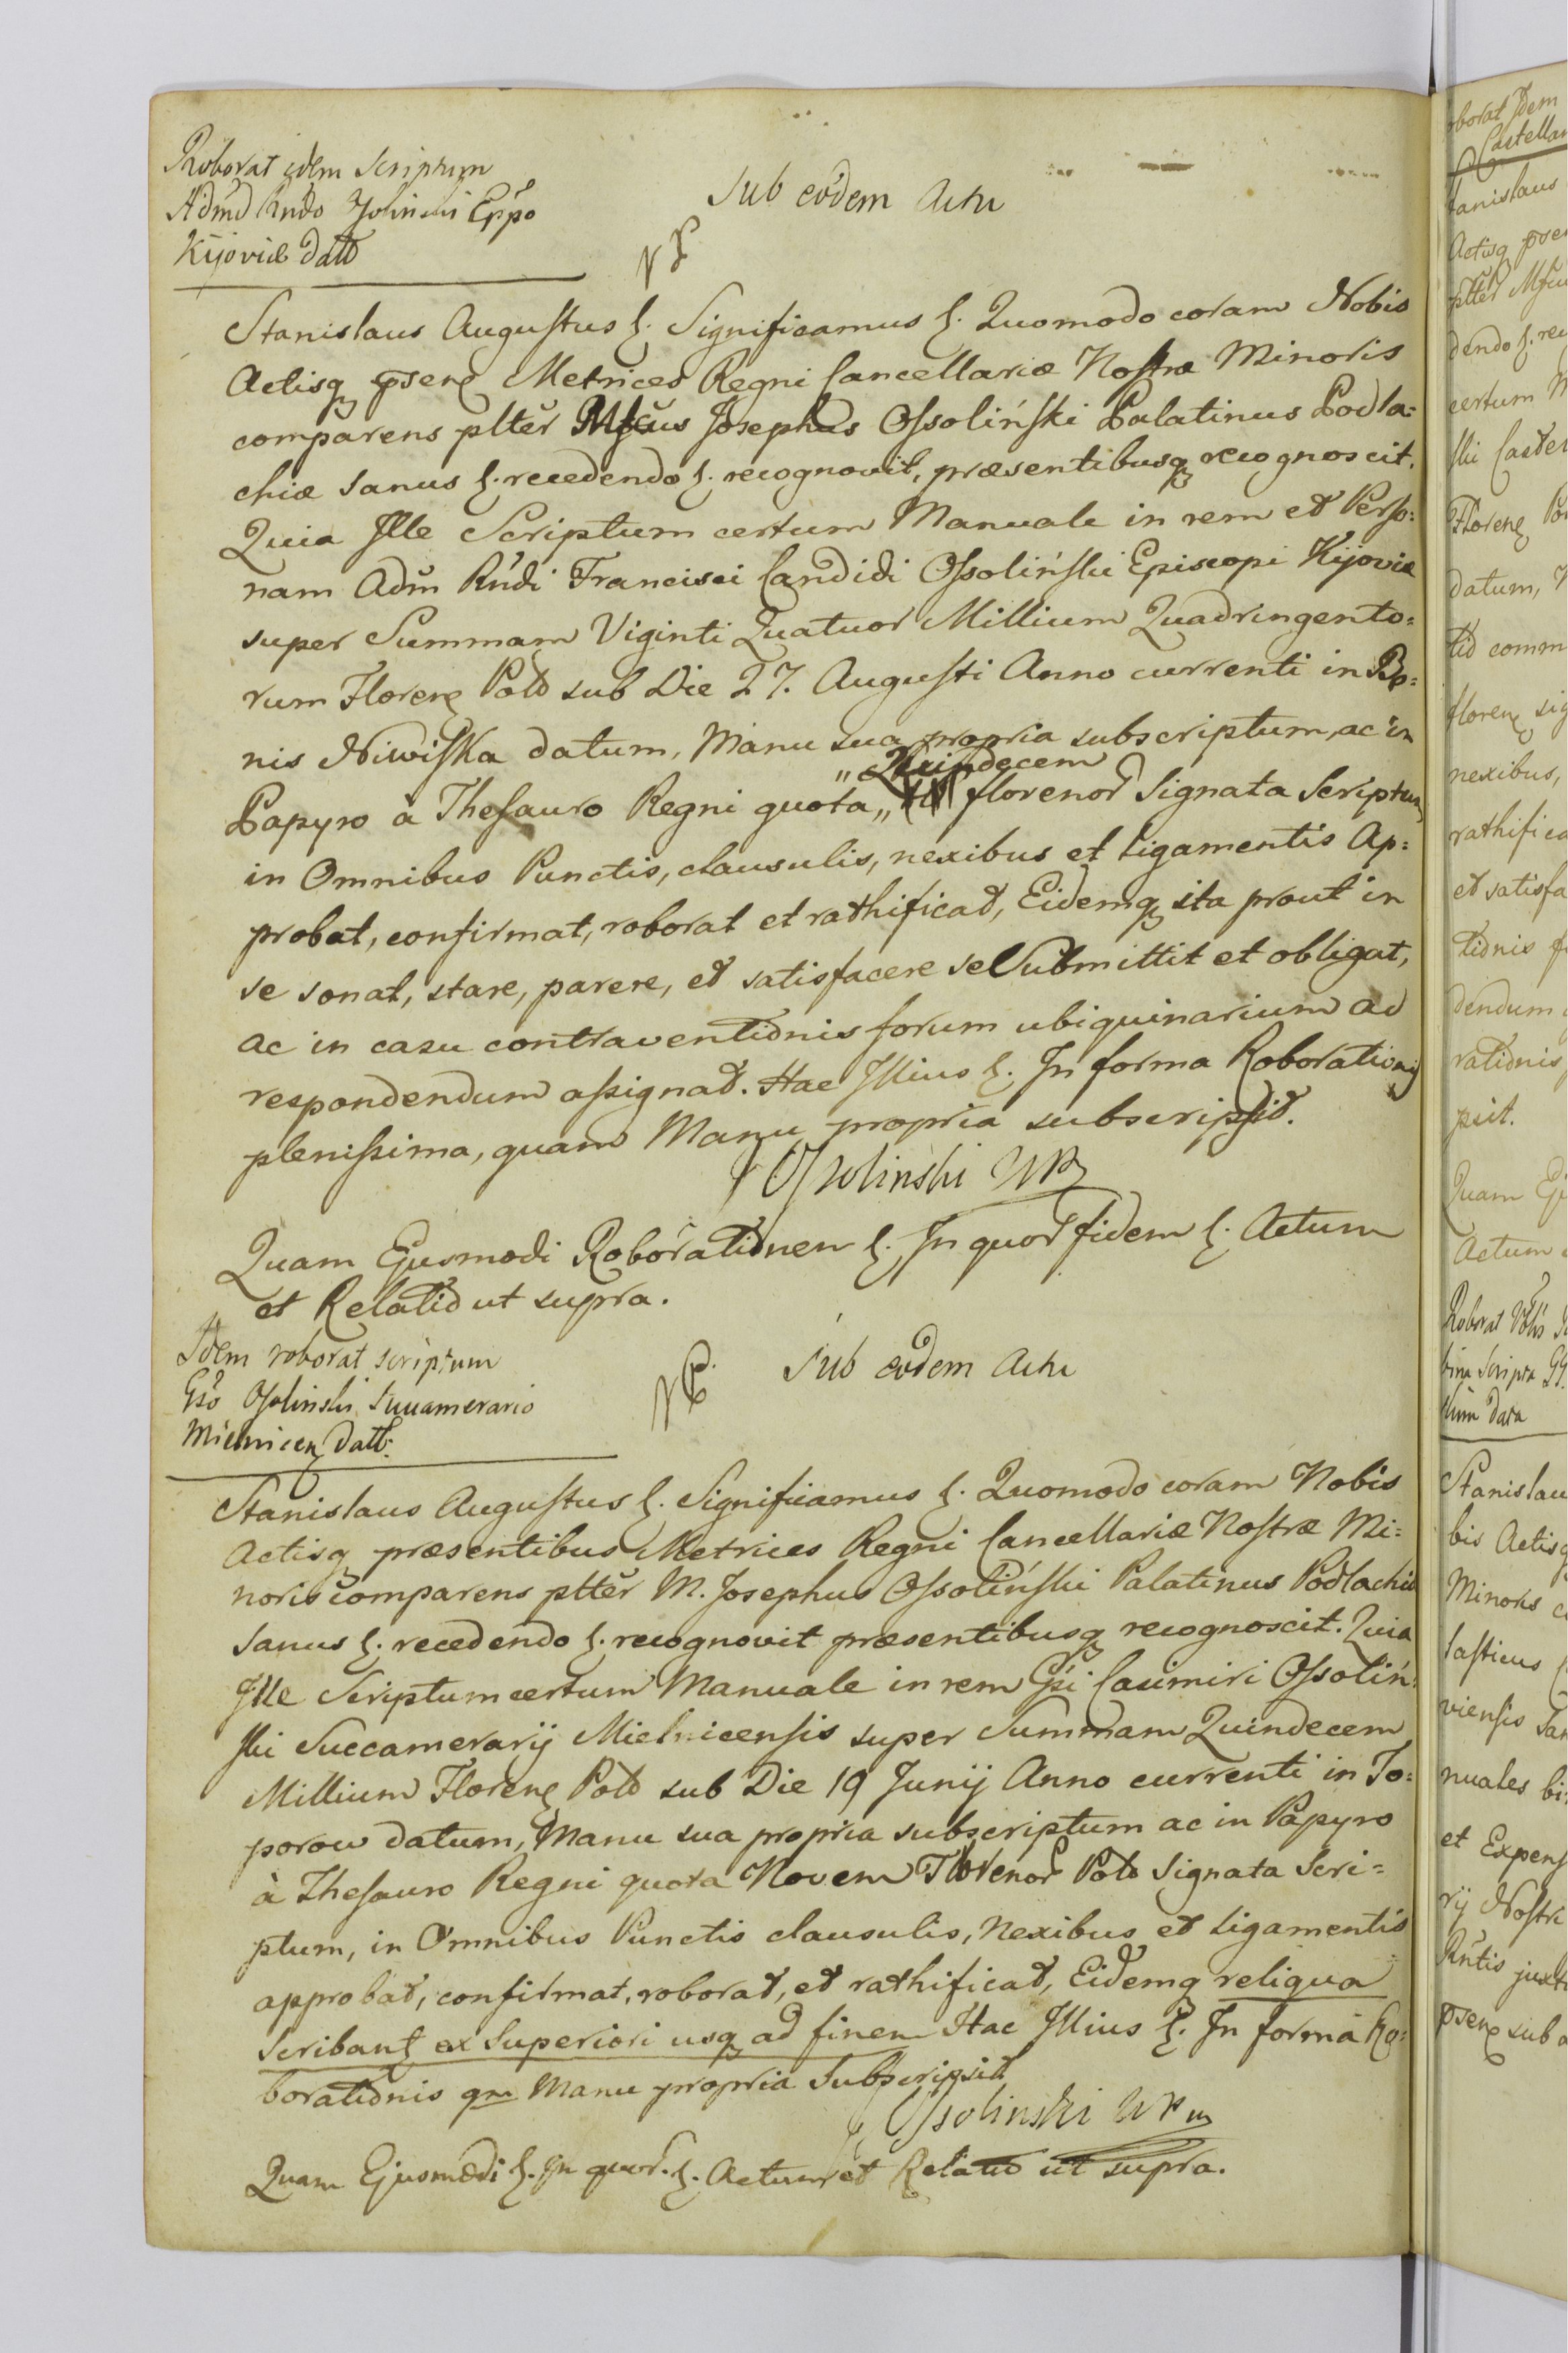 Roborat idem Scriptum
Admd Rndo Eppo
Kijoviæ datt
Sub eodem Actu
Stanislaus Augustus &. Significamus &. Quomodo coram Nobis
Actisq psenƷ Metrices Regni Cancellariæ Nostræ Minoris
comparens plter Mfcus Josephus Ossoliński Palatinus Podla=
chiæ sanus &. recedendo &. recognovit, præsentibusq recognoscit.
Quia Ille Scriptum certum Manuale in rem et Perso=
nam Adm Rndi Francisci Candidi Ossoliński Episcopi Kijoviæ
super Summam Viginti Quatuor Millium Quadringento=
rum FlorenƷ Pold sub Die 27. Augusti Anno currenti in Bo=
nis Niwiska datum, Manu sua propria subscriptum, ac in
Papyro à Thesauro Regni quota „Quindecem„ florenor Signata Scriptum
in Omnibus Punctis, clausulis, nexibus et ligamentis Ap=
probat, confirmat, roborat et rathificat, Eidemq ita prout in
se sonat, stare, parere, et satisfacere se Submittit et obligat,
ac in casu contraventionis forum ubiquinarium ad
respondendum assignat. Hac Illius &. In forma Roborationis
plenissima, quam Manu propria subscripsit.
J Ossolinski WP
Quam Ejusmodi Roborationem &. In quor fidem &. Actum
et Relatio ut supra.
Idem roborat scriptum
Gso Ossolinski Succamerario
MielnicenƷ datt.
Sub eodem Actu
Stanislaus Augustus &. Significamus &. Quomodo coram Nobis
Actisq præsentibus Metrices Regni Cancellariæ Nostræ Mi=
noris comparens plter M. Josephus Ossoliński Palatinus Podlachiæ
Sanus &. recedendo &. recognovit præsentibusq recognoscit. Quia
Ille Scriptum certum Manuale in rem Gsi Casimiri Ossoliń=
ski Succamerarij Mielnicensis super Summam Quindecem
Millium FlorenƷ Pold sub Die 19 Junij Anno currenti in To=
porow datum, Manu sua propria subscriptum ac in Papyro
à Thesauro Regni quota Novem Florenor Pold Signata Scri=
ptum, in Omnibus Punctis clausulis, Nexibus et ligamentis
approbat, confirmat, roborat, et rathificat, Eidemq reliqua
Scribant ex Superiori usq ad finem Hac Illius &. In forma Ro=
borationis qm Manu propria Subscripsit
J Ossolinski WP
Quam Ejusmodi &. In quor. &. Actum et Relatio ut supra.